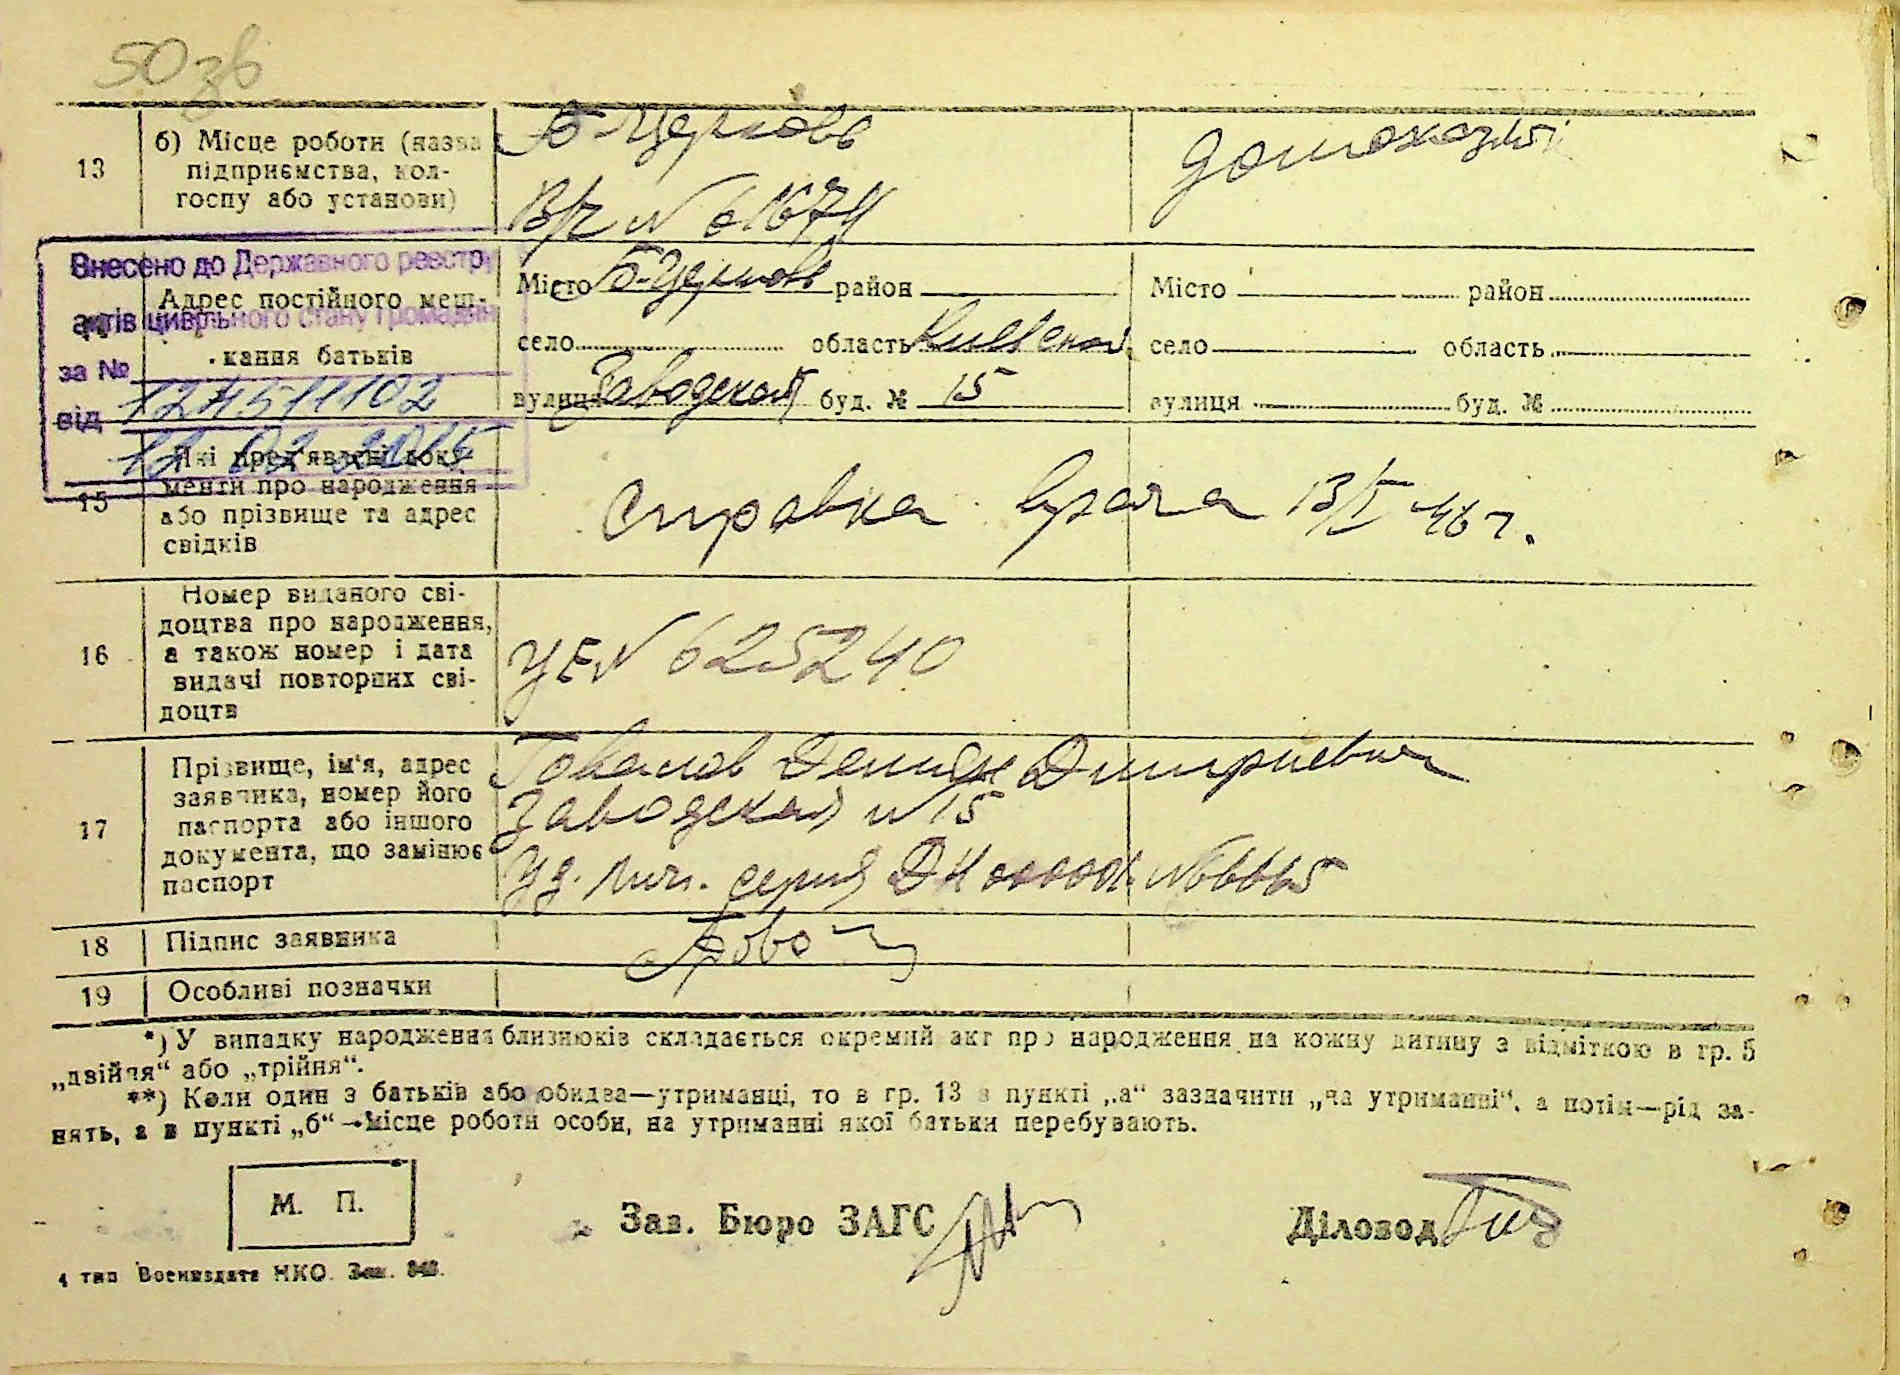 50зв
13
б) Місце роботи (назва
підприємства, кол-
госпу або установи)
Б-Церковь
В/ч № 61674
Внесено до Державного реєстру
актів цивільного стану громадян
за №
від
Адрес постійного меш-
кання батьків
Місто Б-Церковь район Місто район
село область Киевской село область
вулиця Заводская буд. № 15 вулиця буд. №
15
Які пред'явлені доку-
менти про народження
або прізвище та адрес
свідків
Справка врача 13/I 46 г.
16
Номер виданого сві-
доцтва про народження,
а також номер і дата
видачі повторних сві-
доцтв
УЕ № 625240
17
Прізвище, ім'я, адрес
заявника, номер його
паспорта або іншого
документа, що замінює
паспорт
Демьян Дмитриевич
Заводская № 15
Уд. лич. серия
18 Підпис заявника
19 Особливі позначки
*) У випадку народження близнюків складається окремий акт про народження на кожну дитину з відміткою в гр. 5
„двійня“ або „трійня“.
**) Коли один з батьків або обидва—утриманці, то в гр. 13 в пункті „а“ зазначити „на утриманні“, а потім—рід за-
нять, а в пункті „б“—місце роботи особи, на утриманні якої батьки перебувають.
М. П.
Зав. Бюро ЗАГС Діловод
4 тип Воениздата НКО. Зак.